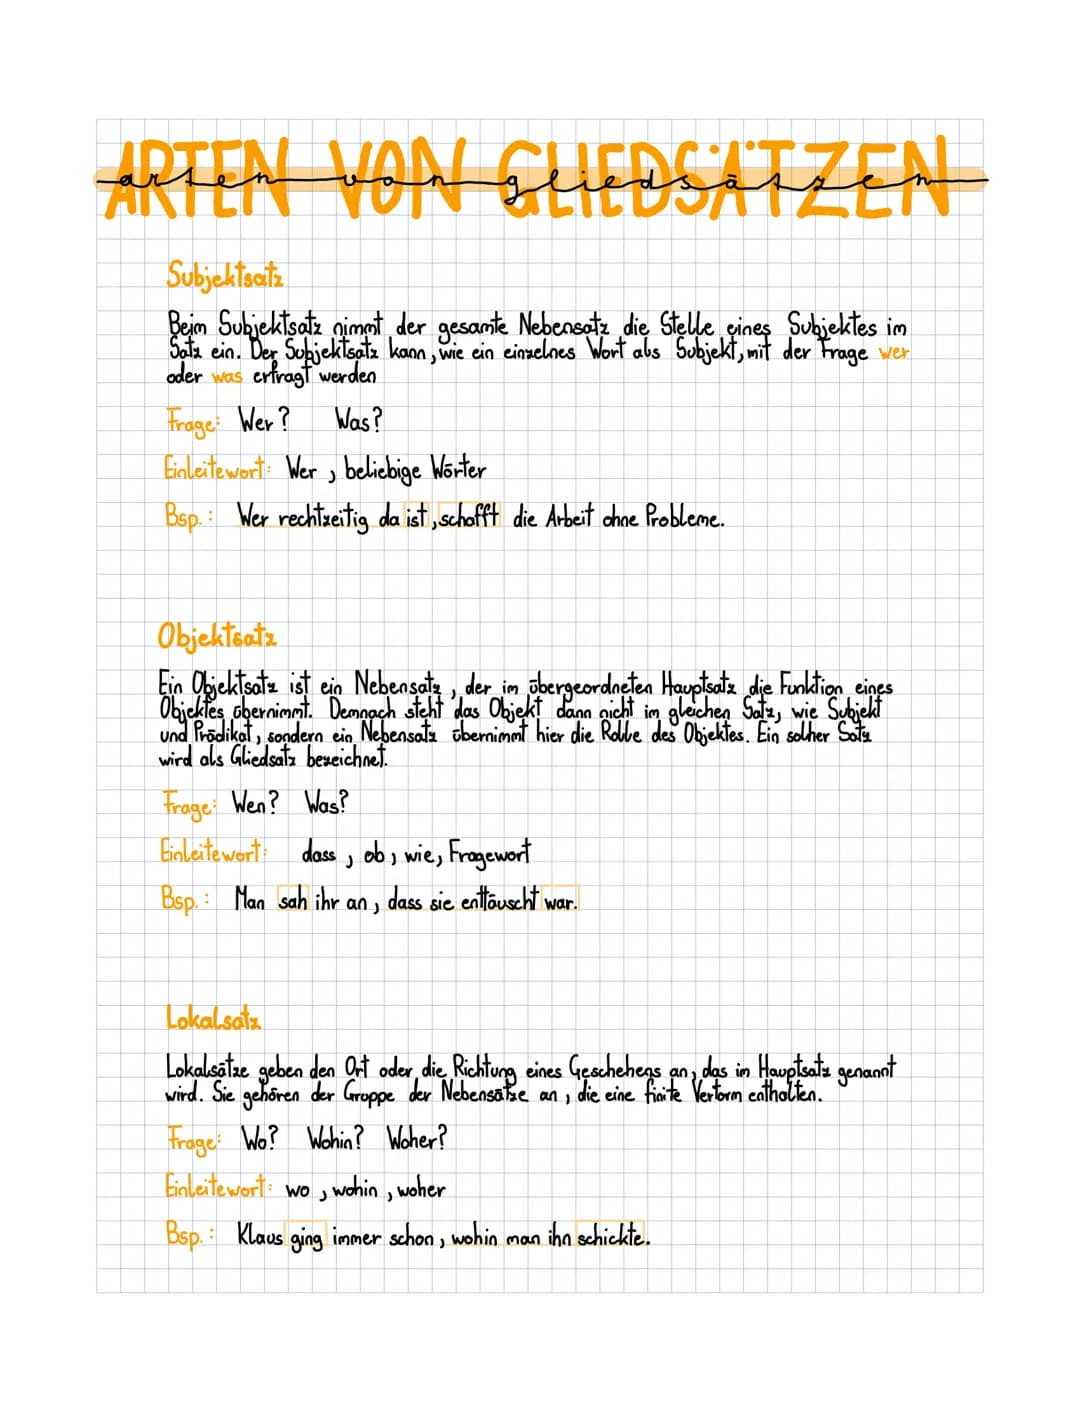 ARTEN VON GLIEDSÄTZEN
arten von gliedsätzen
Subjektsatz
Beim Subjektsatz nimmt der gesamte Nebensatz die Stelle eines Subjektes im
Satz ein. Der Subjektsatz kann, wie ein einzelnes Wort als Subjekt, mit der Frage wer
oder was erfragt werden
Frage: Wer? Was?
Einleitewort: Wer, beliebige Wörter
Bsp.: Wer rechtzeitig da ist, schafft die Arbeit ohne Probleme.
Objektsatz
Ein Objektsatz ist ein Nebensatz, der im übergeordneten Hauptsatz die Funktion eines
Objektes übernimmt. Demnach steht das Objekt dann nicht im gleichen Satz, wie Subjekt
und Prädikat, sondern ein Nebensatz übernimmt hier die Rolle des Objektes. Ein solher Satz
wird als Gliedsatz bezeichnet.
Frage: Wen? Was?
Einleitewort: dass, ob, wie, Fragewort
Bsp.: Man sah ihr an, dass sie enttäuscht war.
Lokalsatz
Lokalsätze geben den Ort oder die Richtung eines Geschehens an, das im Hauptsatz genannt
wird. Sie gehören der Gruppe der Nebensätze an, die eine finite Verform enthalten.
Frage: Wo? Wohin? Woher?
Einleitewort: wo, wohin, woher
Bsp.: Klaus ging immer schon, wohin man ihn schickte.